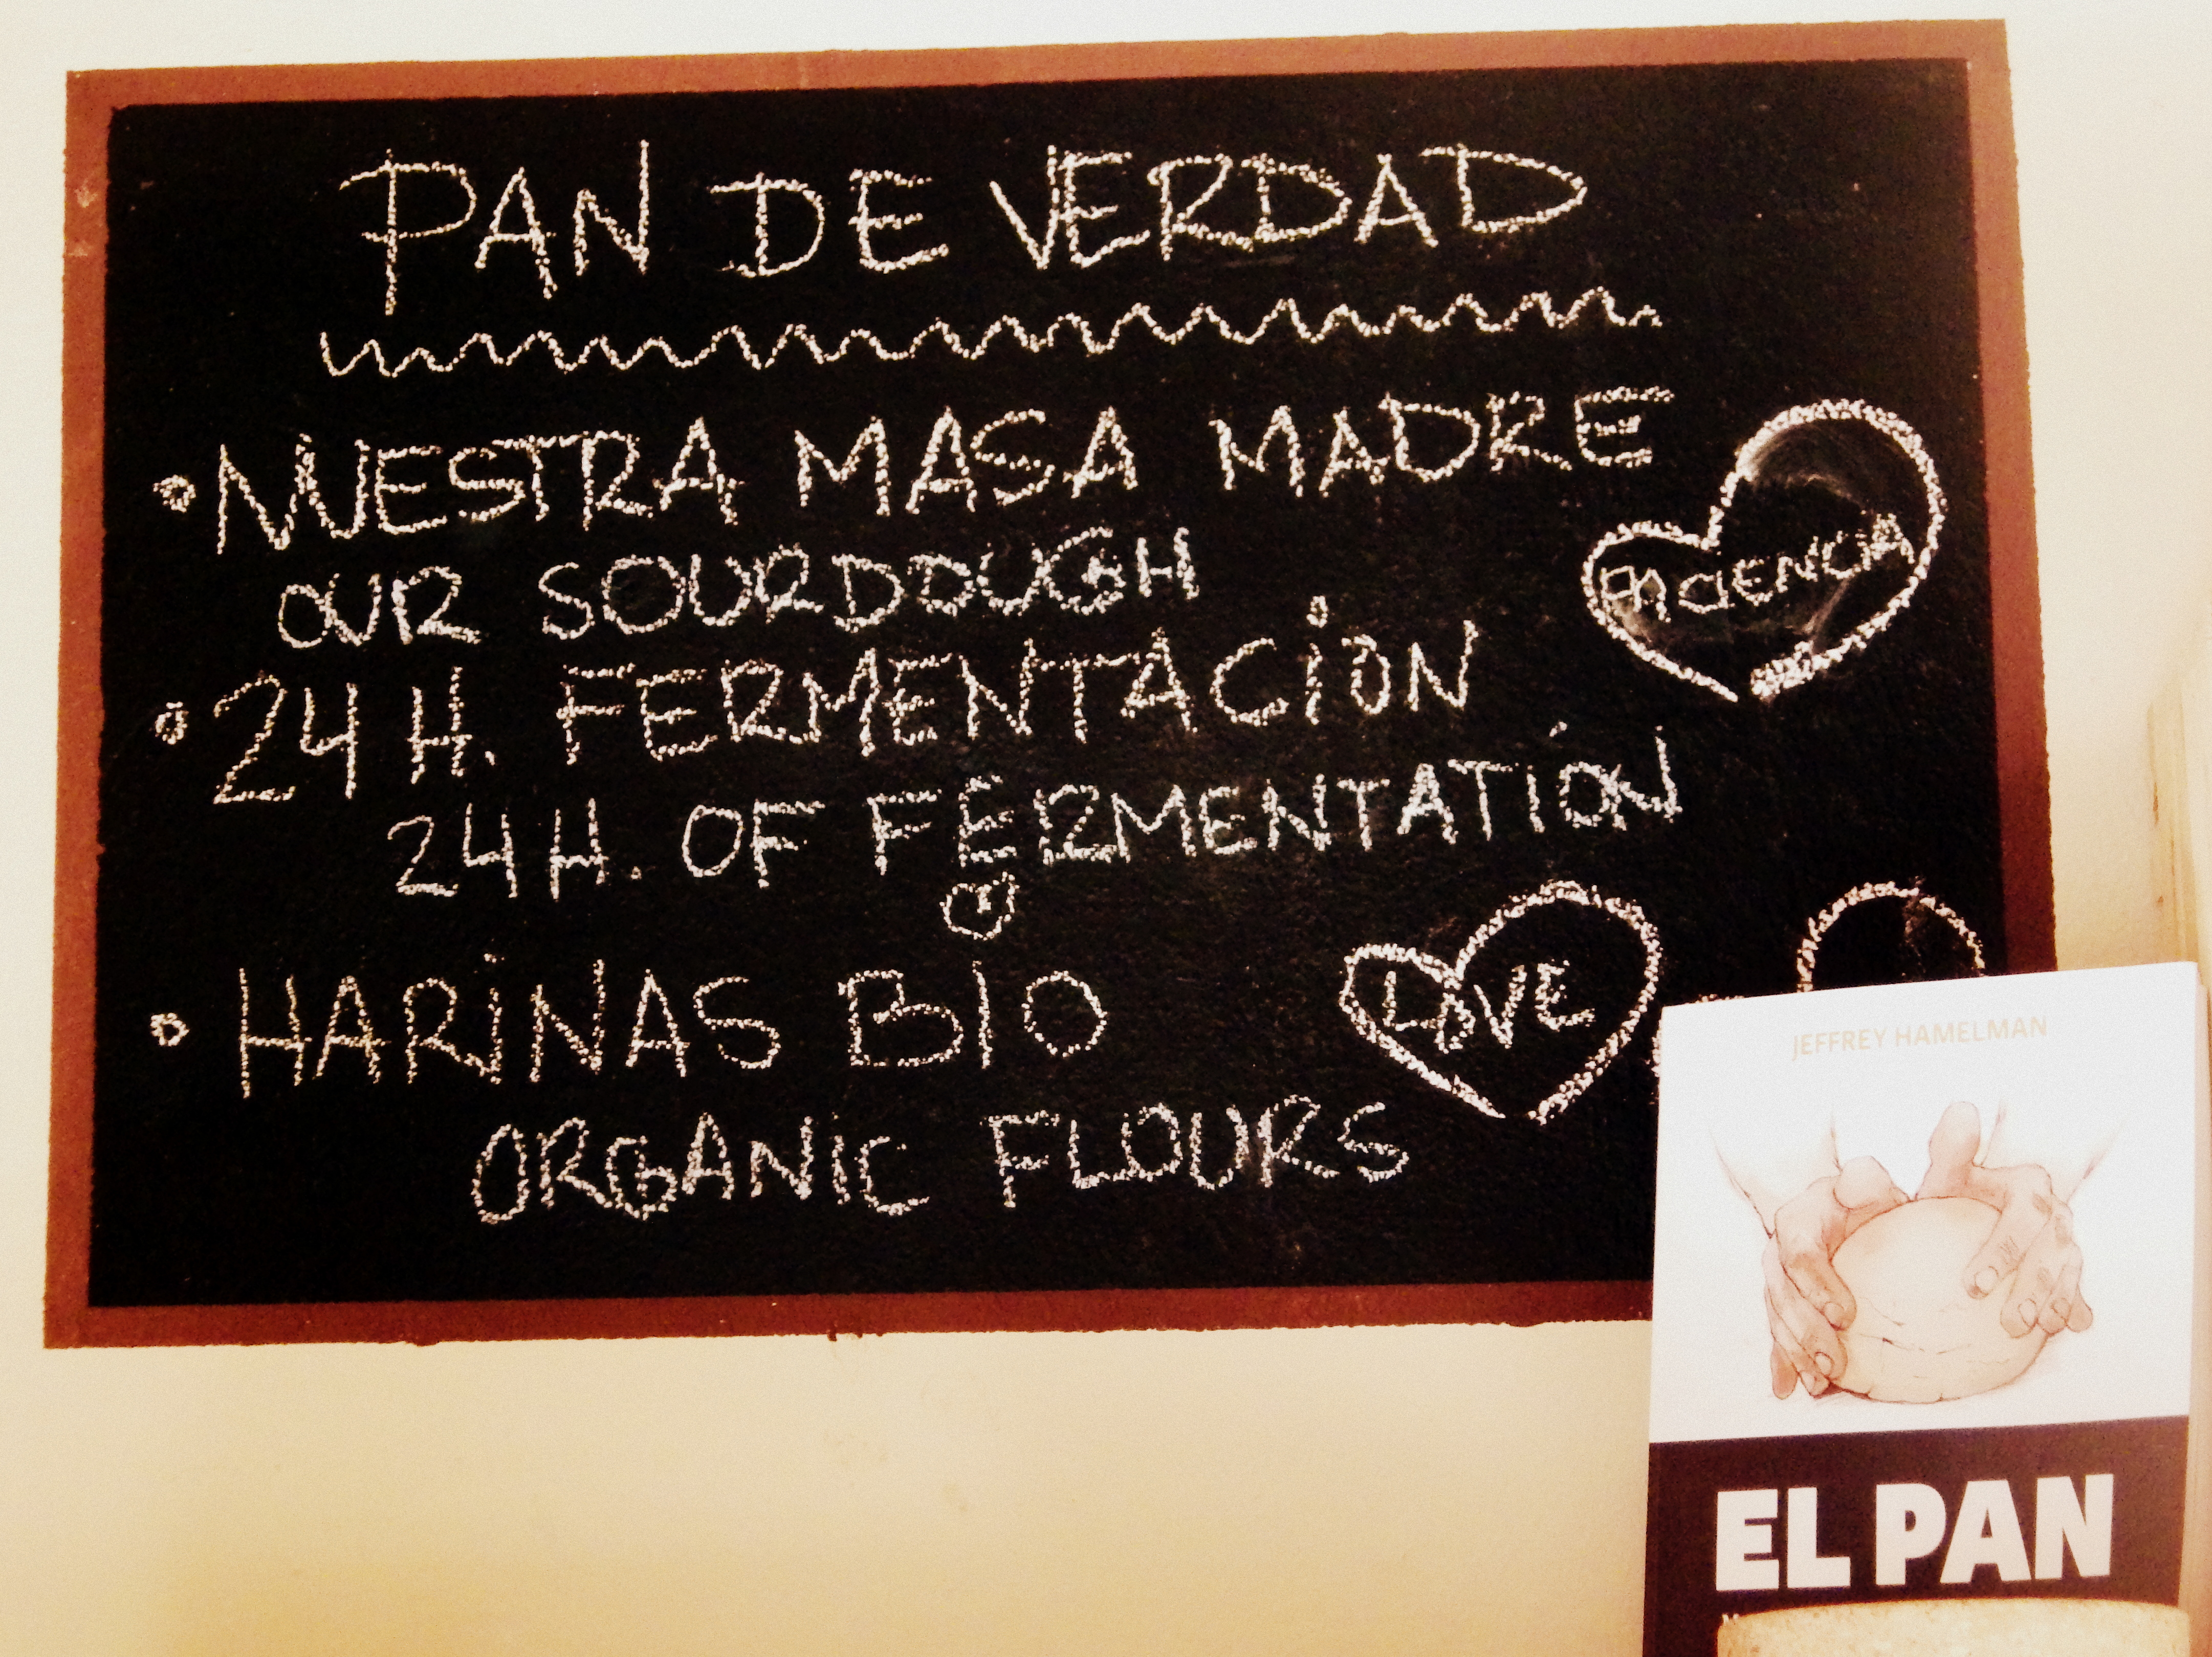 PAN DE VERDAD
• NUESTRA MASA MADRE
OUR SOURDOUGH
PACIENCIA
• 24 H. FERMENTACION
24 H. OF FERMENTATIÓN
• HARINAS BIO
LOVE
ORGANIC FLOURS
JEFFREY HAMELMAN
EL PAN